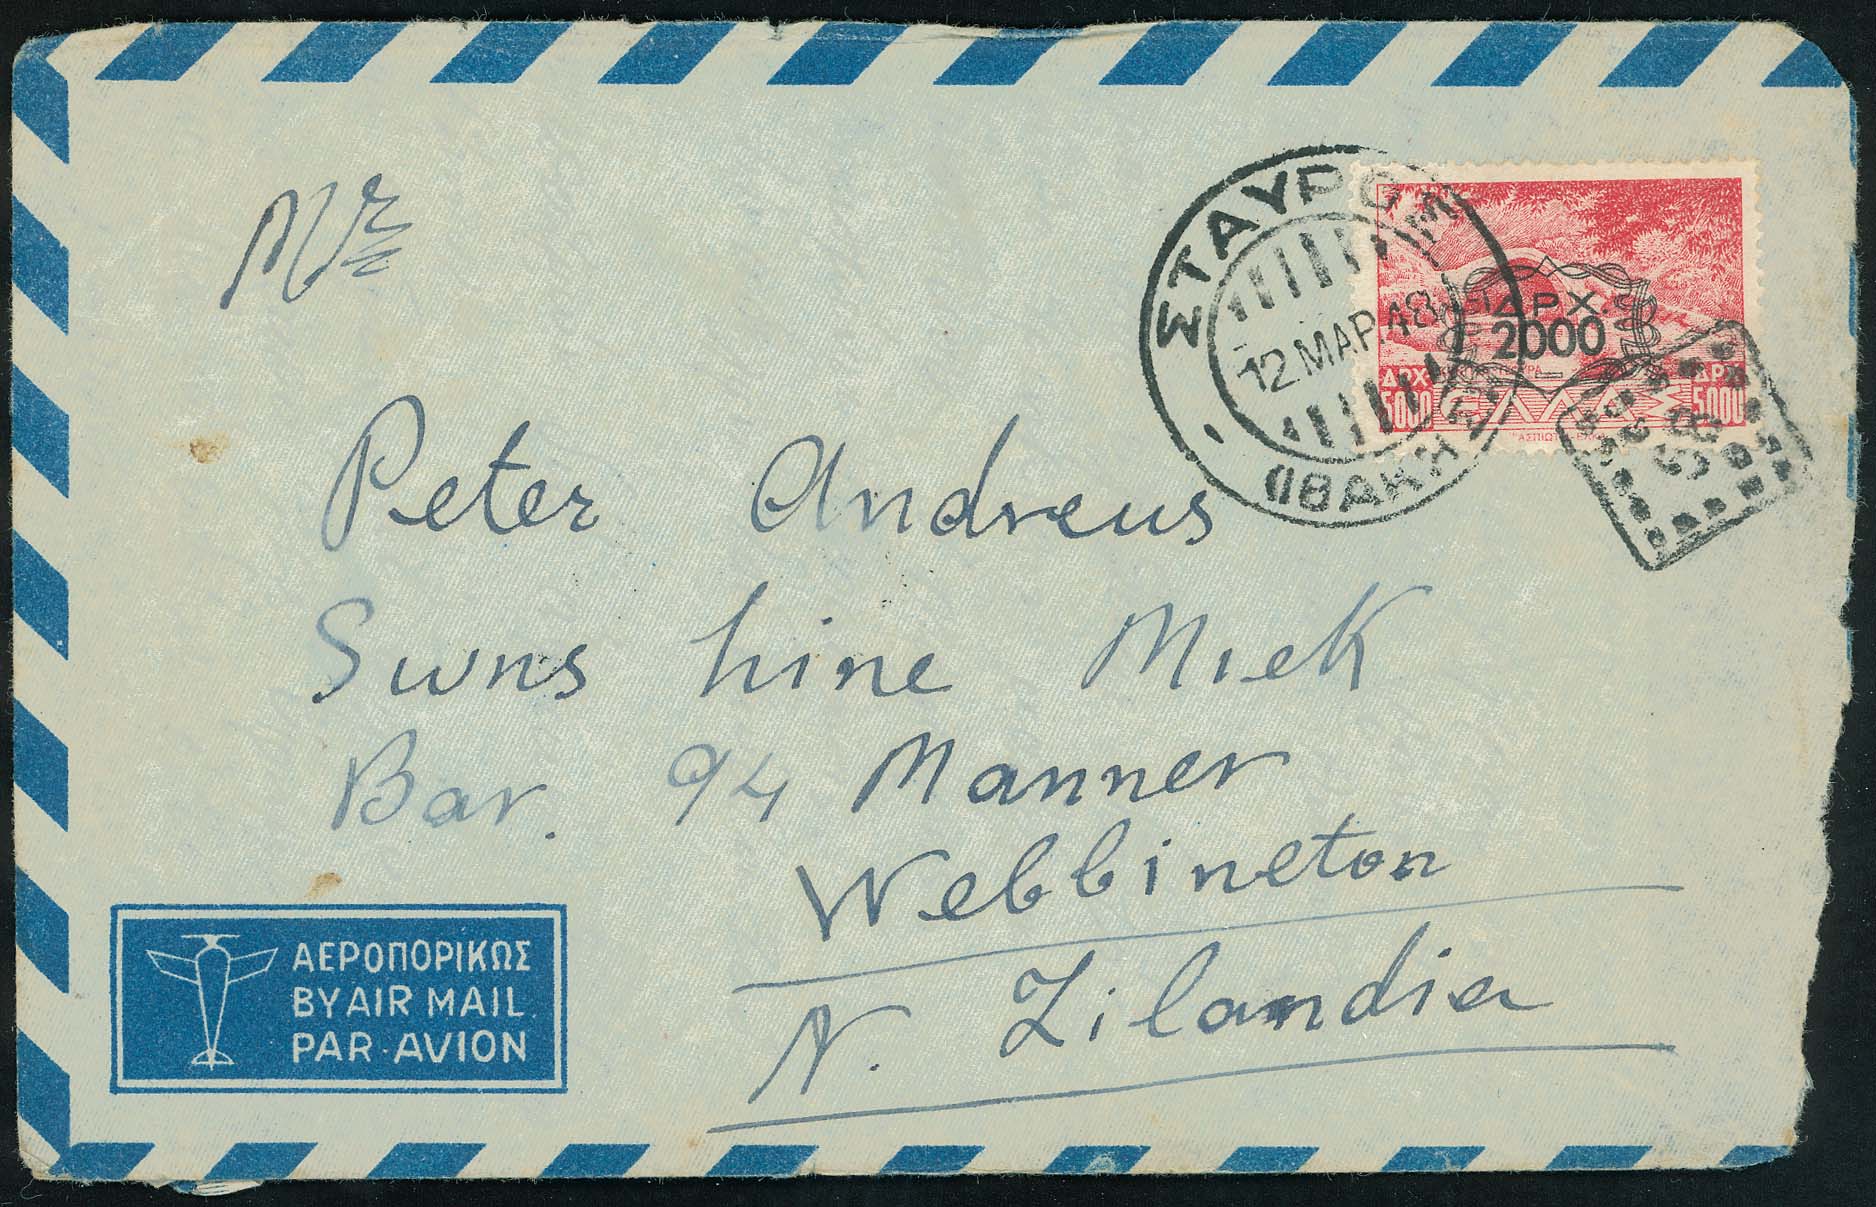 Mr
ΣΤΑΥΡΟ
12 ΜΑΡ. 48
(ΙΘΑΚΗ
ΔΡΧ.
2000
ΔΡΧ ΔΡΧ
5000 ΕΛΛΑΣ 5000
Peter Andreus
Swns hine Miek
Bar. 94 Manner
Webbineton
N. Zilandia
ΑΕΡΟΠΟΡΙΚΩΣ
BY AIR MAIL
PAR AVION